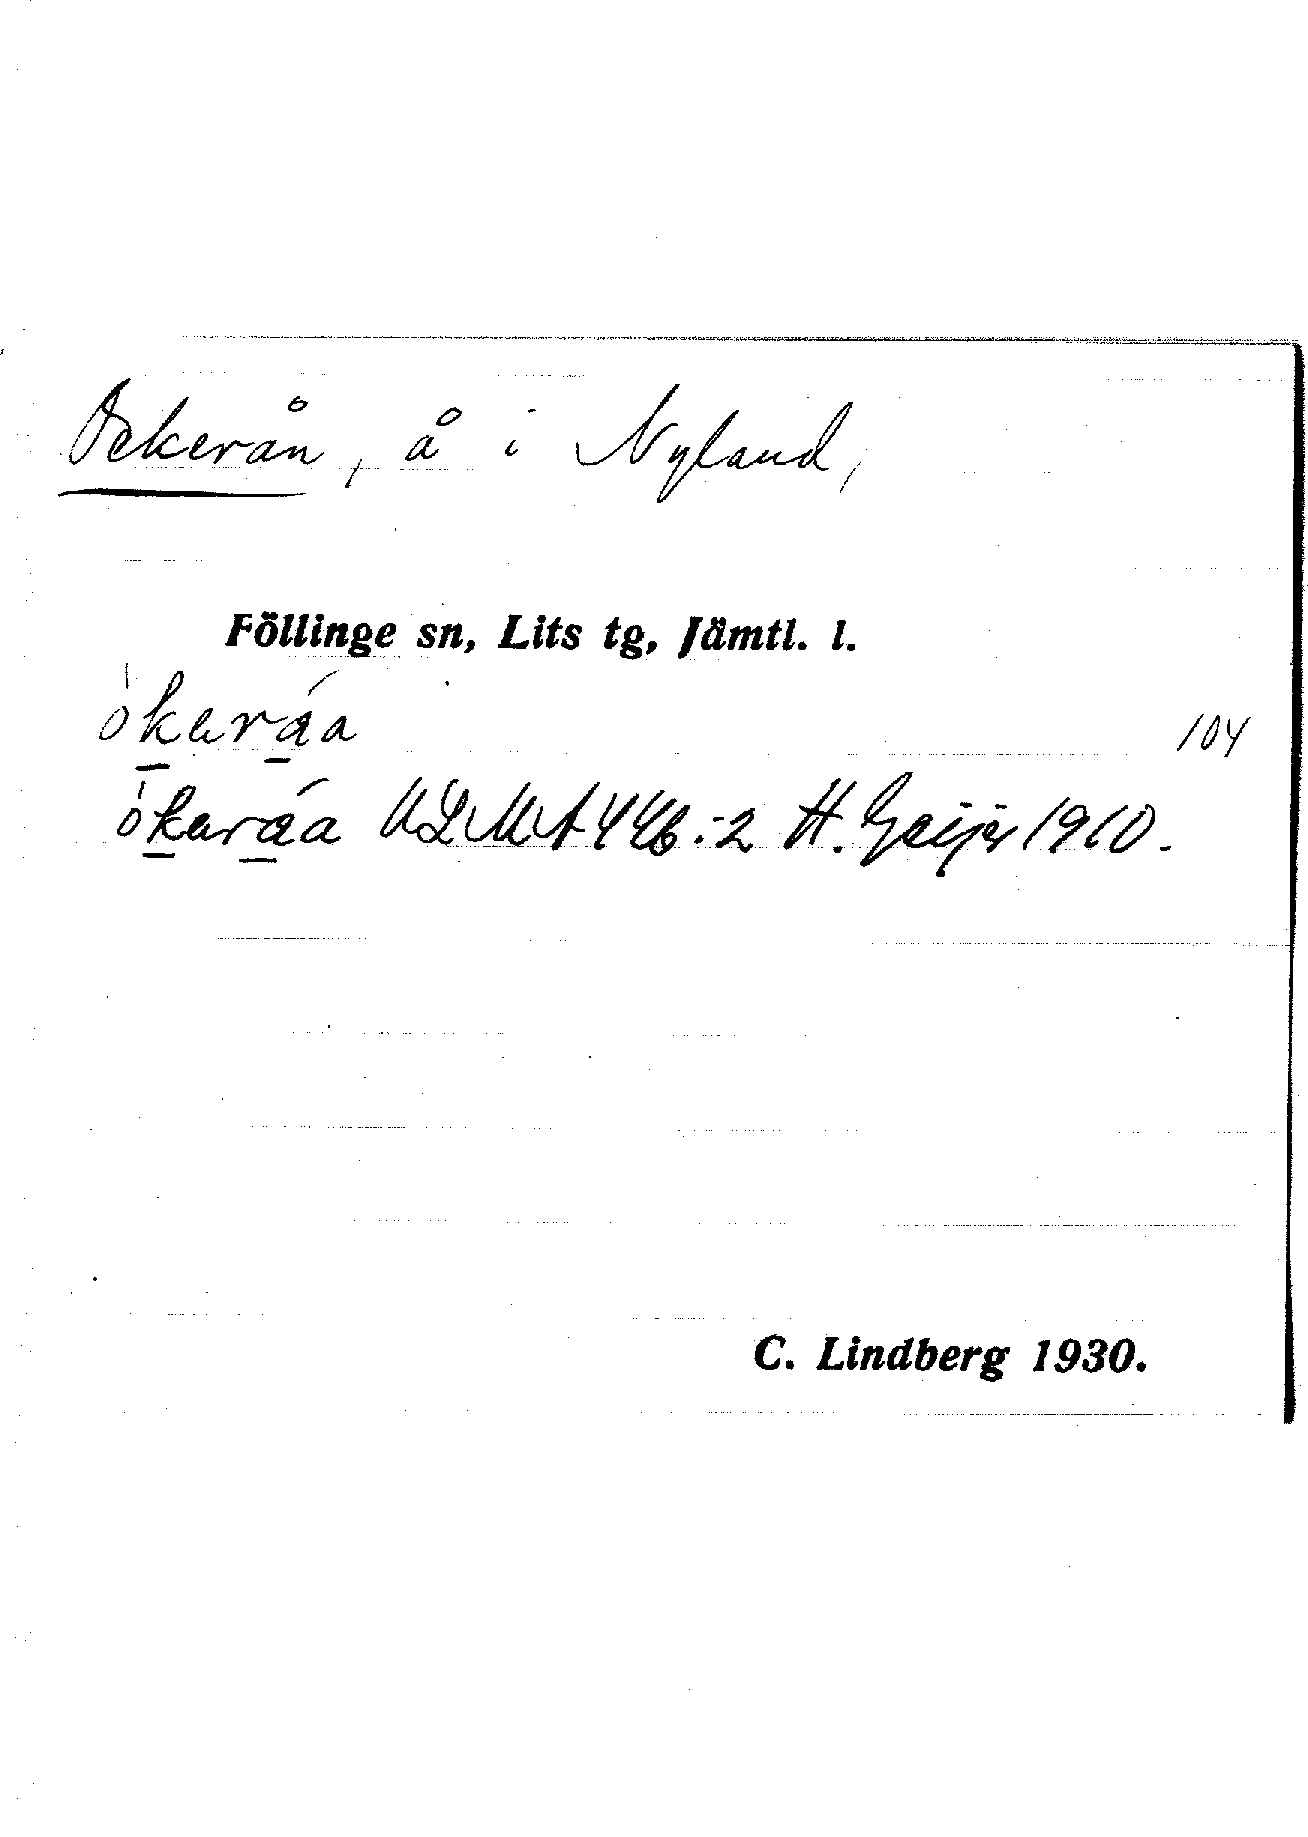 Ockerån, å i Nyland,
Föllinge sn, Lits tg, Jämtl. l.
òkeráa
104
òkaráa ULMA 446:2 H. Geijer 1910.
C. Lindberg 1930.